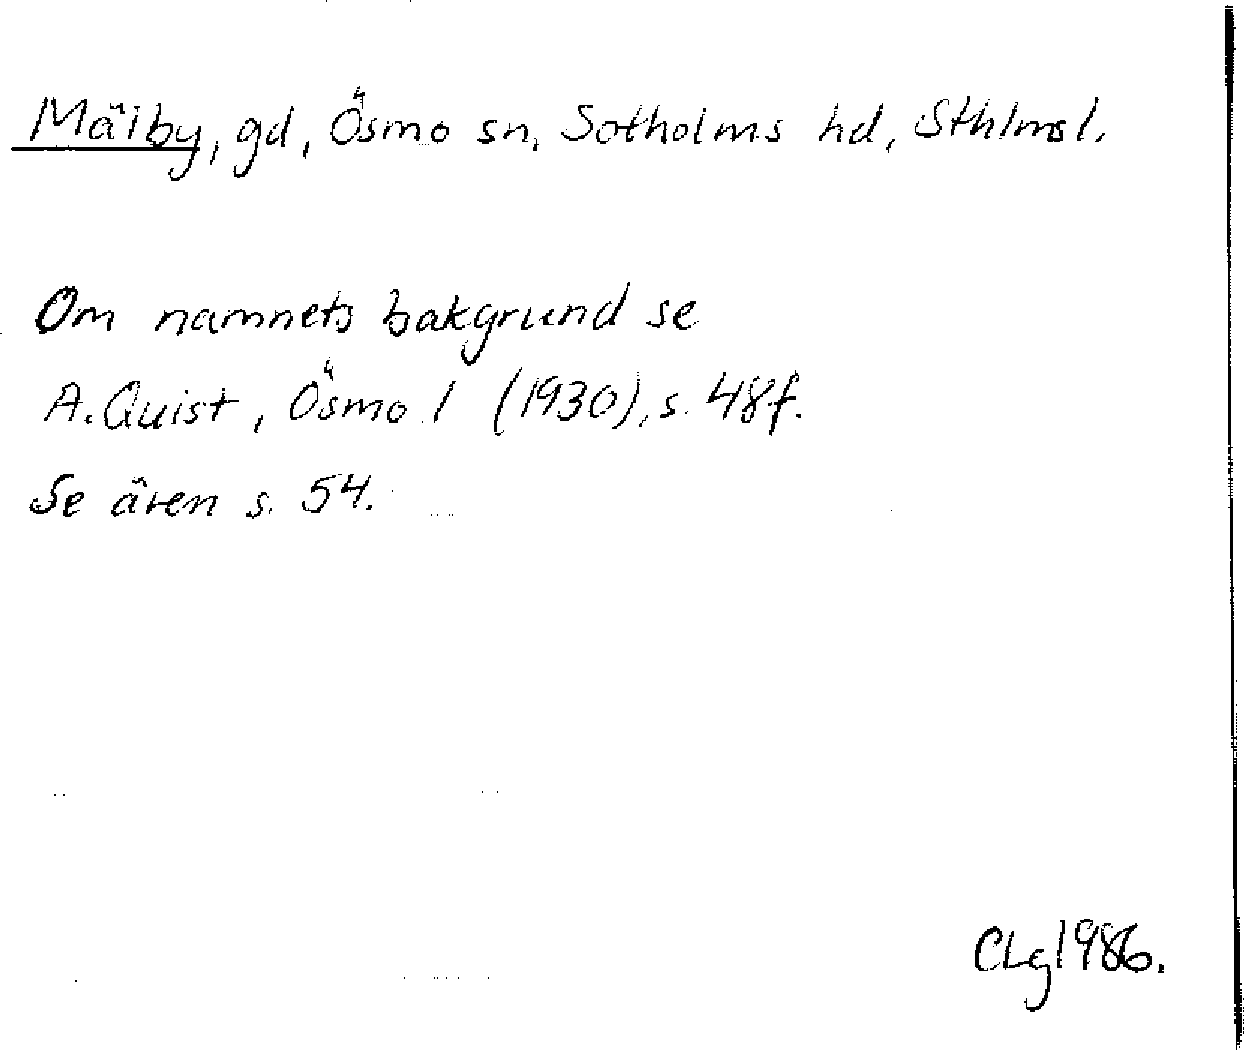 Mäiby, gd, Ösmo sn, Sotholms hd, Sthlms l.
Om namnets bakgrund se
A. Quist, Ösmo 1 (1930), s. 48f.
Se även s. 54.
CLg 1986.